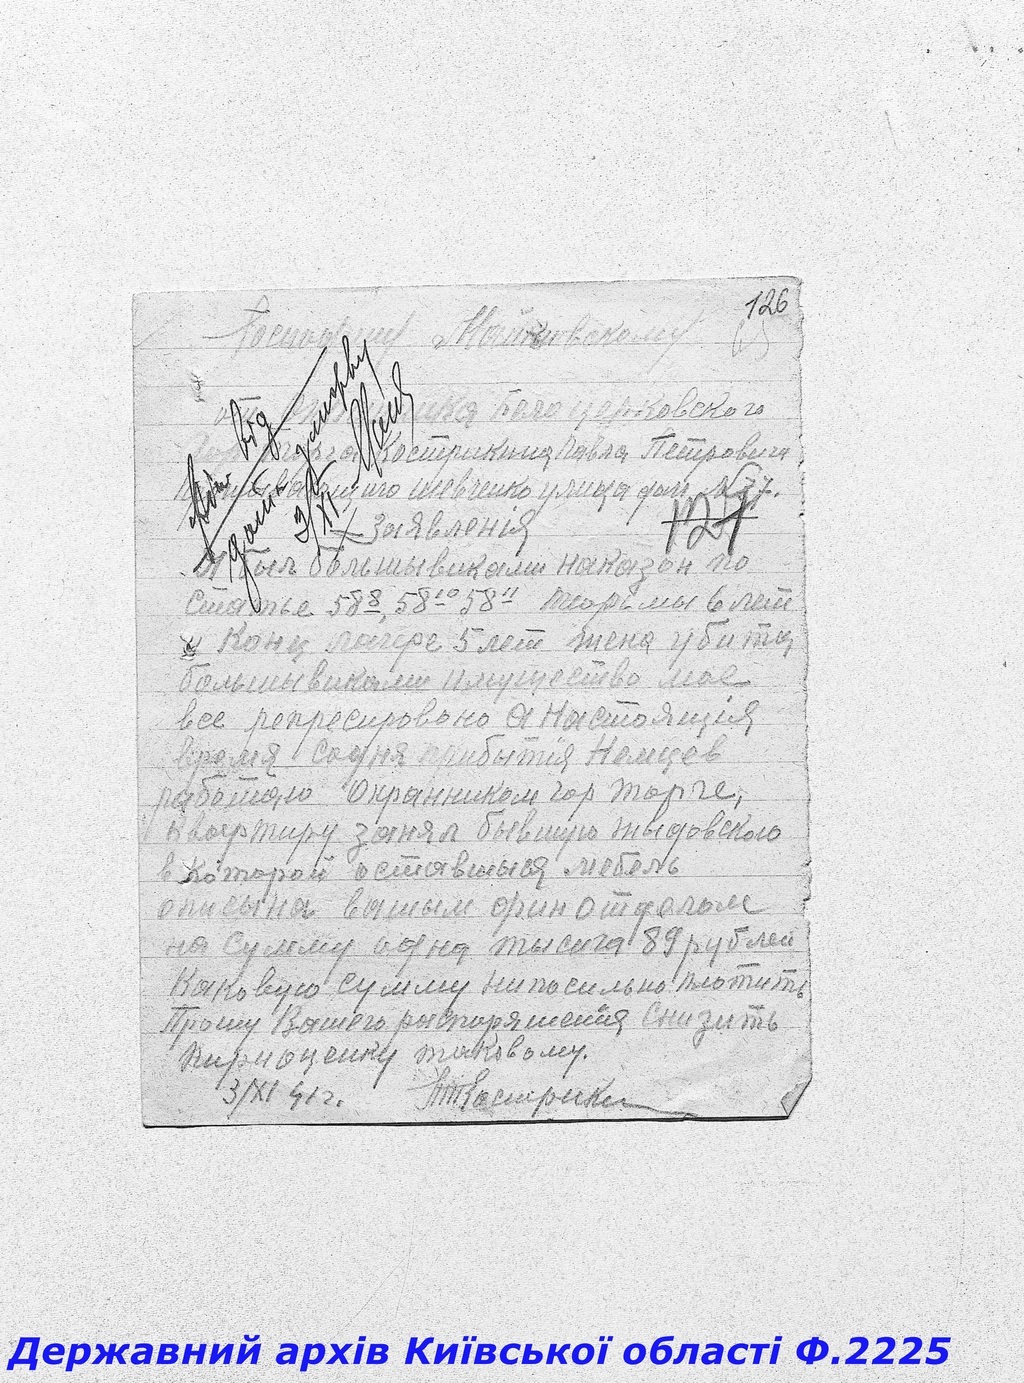 126
Господину
от Охранника Белоцерковского
Горторга Кострикина Павла Петровича
Шевченко улица дом № 77.
127
Заявления
Я был большывиками наказон по
статье 58 8, 58 10 58 11 тюрьмы 6 лет
и Конц лагере 5 лет жена убита
большывиками имущество мае
все репресировано а Настоящія
время Содня прибытія Немцев
работаю Охранником гор торге,
квартиру занял бывшую жыдовского
в которой оставшыся мебель
описына вашым фин отделом
на сумму одна тысича 89 рублей
Каковую сумму нипосильно платить
Прошу Вашего распоряженія Снизить
таковому.
3/XI 41 г.
3/XI
Державний архів Київської області Ф.2225